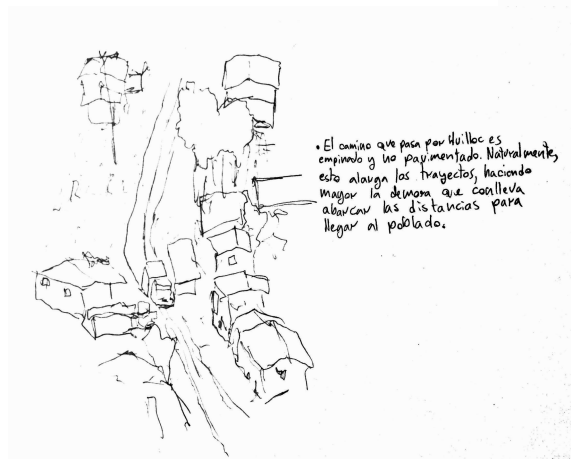 • El camino que pasa por Huilloc es
empinado y no pavimentado. Naturalmente,
esto alarga los trayectos, haciendo
mayor la demora que conlleva
abarcar las distancias para
llegar al poblado.